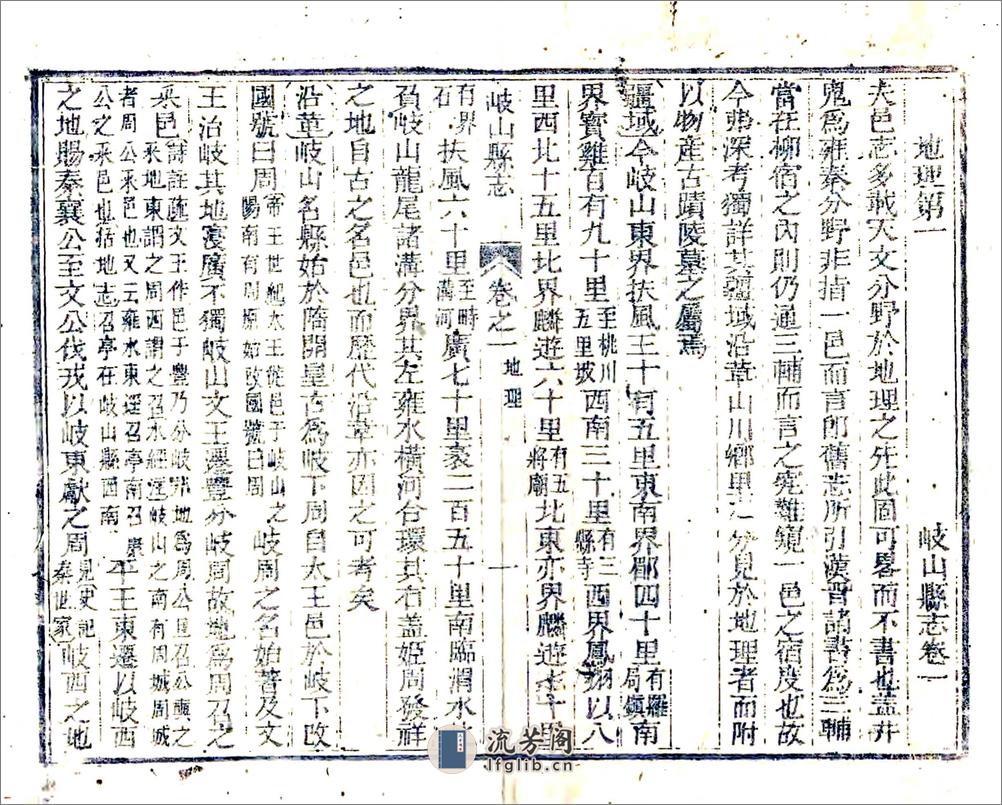 地理第一　岐山縣志卷一
夫邑志多載天文分野於地理之先此固可畧而不書也蓋井
鬼為雍秦分野非指一邑而言即舊志所引漢晉諸書為三輔
當在柳宿之內則仍通三輔而言之究難窺一邑之宿度也故
今弗深考獨詳其疆域沿革山川鄉里之分見於地理者而附
以物產古蹟陵墓之屬焉
疆域今岐山東界扶風三十有五里東南界郿四十里有羅局鎮南
界寶雞百有九十里至桃川五里坡西南三十里有三縣寺西界鳳翔以八
里西北十五里北界麟遊六十里有五將廟北東亦界麟遊七十里
岐山縣志　卷之一　地理　一
有界石扶風六十里至畤溝河廣七十里袤二百五十里南臨渭水
負岐山龍尾諸溝分界其左雍水橫河合環其右蓋姬周發祥
之地自古之名邑也而歷代沿革亦因之可考矣
沿革岐山名縣始於隋開皇古為岐下周自太王邑於岐下改
國號曰周帝王世紀太王徙邑于岐山之陽南有周原始改國號曰周岐周之名始著及文
王治岐其地寖廣不獨岐山文王遷豐分岐周故地為周召之
采邑詩註疏文王作邑于豐乃分岐邦地為周公旦召公奭之采地東謂之周西謂之召水經注岐山之南有周城周城
者周公采邑也又云雍水東逕召亭南召康公之采邑也括地志召亭在岐山縣西南平王東遷以岐西
之地賜秦襄公至文公伐戎以岐東獻之周見史記秦世家岐西之地
流芳阁
lfglib.cn